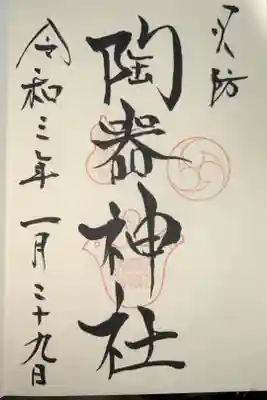 火防
陶器神社
令和三年 一月二十九日